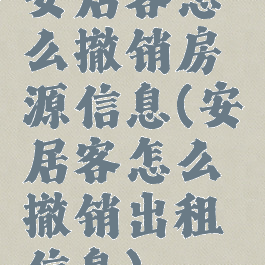 安居客怎
么撤销房
源信息(安
居客怎么
撤销出租
信息)